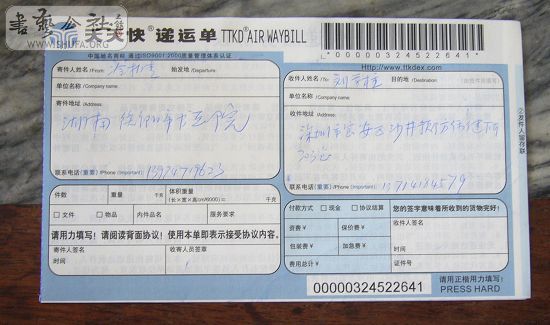 書藝公社
WWW.SHUFA.ORG
天天快递运单 TTKD® AIR WAYBILL
L00000324522641L
中国地名商标 通过ISO9001:2000质量管理体系认证
Http://www.ttkdex.com
寄件人姓名/From 始发地/Departure
收件人姓名/To 目的地/Destination
单位名称/Company name
单位名称/Company name
寄件地址/Address
收件地址/Address
湖南 市中医院
深圳市宝安区沙井
联系电话(重要)/Phone (Important)
联系电话(重要)/Phone (Important) 13714184579
②发件人留存联
件数 重量 千克 体积重量 (长×宽×高cm/6000)= 千克
□文件 □物品 内件品名 服务要求
请用力填写！请阅读背面协议！使用本单即表示接受协议内容。
寄件人签名 收寄人员签章
时间
付款方式 □现金 □协议结算
资费 ¥ 保价费 ¥
包装费 ¥ 加急费 ¥
费用总计 ¥
您的签字意味着所收到的货物完好！
收件人签名
时间
证件号
00000324522641
请用正楷用力填写！
PRESS HARD